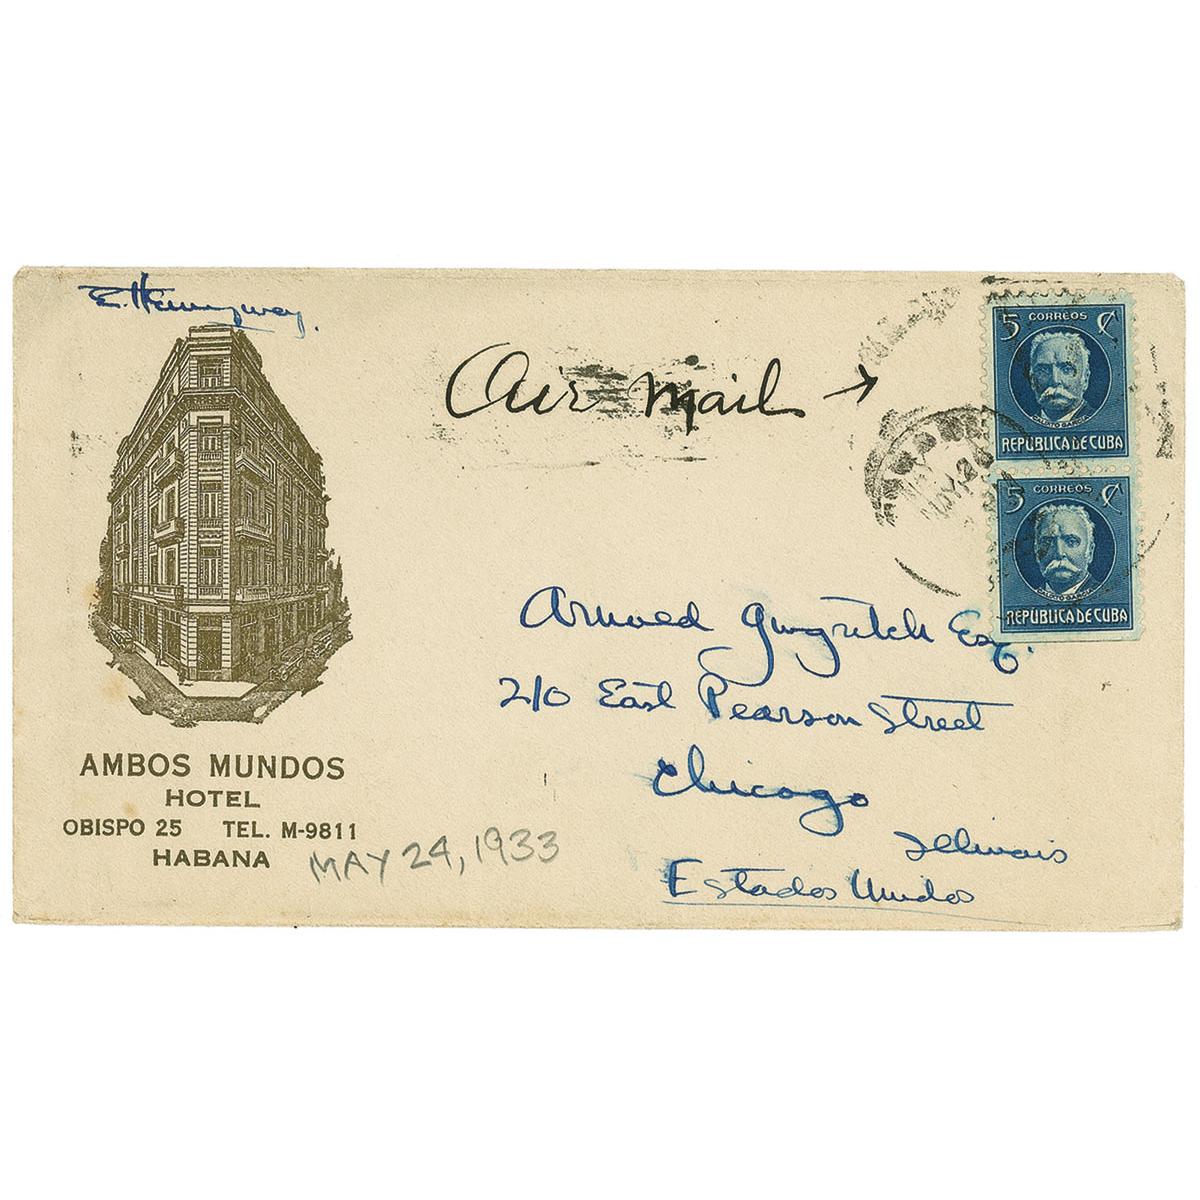 E. Hemingway.
Air Mail →
5 CORREOS ¢
CALIXTO GARCIA
REPÚBLICA DE CUBA
5 CORREOS ¢
CALIXTO GARCIA
REPÚBLICA DE CUBA
Arnold Gingrich Esq.
210 East Pearson Street
Chicago
Illinois
Estados Unidos
AMBOS MUNDOS
HOTEL
OBISPO 25 TEL. M-9811
HABANA
MAY 24, 1933